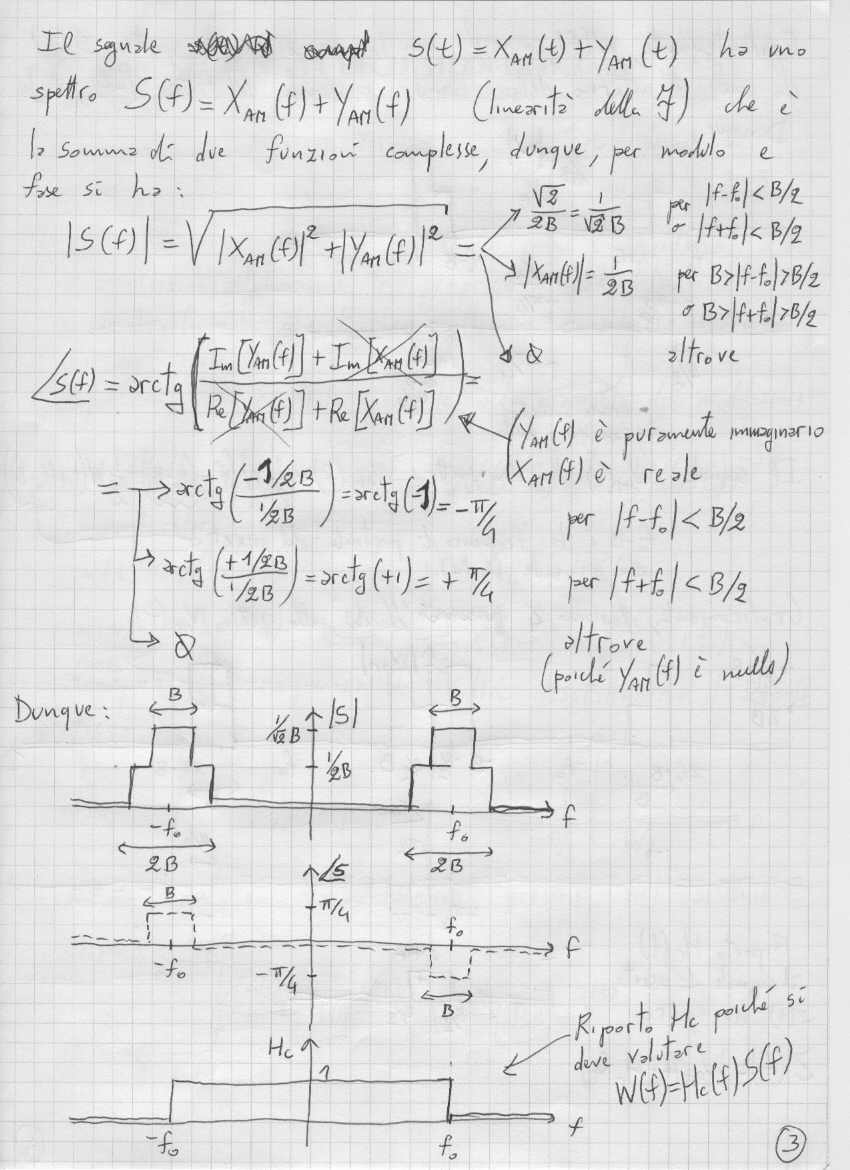 Il segnale s(t) = X_AM(t) + Y_AM(t) ha uno
spettro S(f) = X_AM(f) + Y_AM(f) (linearità della ℱ) che è
la somma di due funzioni complesse, dunque, per modulo e
fase si ha:
|S(f)| = √(|X_AM(f)|² + |Y_AM(f)|²) = → √2/2B = 1/√2B per |f-f₀| < B/2
o |f+f₀| < B/2
→ |X_AM(f)| = 1/2B per B>|f-f₀|>B/2
o B>|f+f₀|>B/2
→ 0 altrove
∠S(f) = arctg((Im[Y_AM(f)] + Im[X_AM(f)])/(Re[Y_AM(f)] + Re[X_AM(f)])) =
(Y_AM(f) è puramente immaginario
X_AM(f) è reale
= → arctg((-1/2B)/(1/2B)) = arctg(-1) = -π/4 per |f-f₀| < B/2
→ arctg((+1/2B)/(1/2B)) = arctg(+1) = + π/4 per |f+f₀| < B/2
→ 0 altrove
(poiché Y_AM(f) è nullo)
Dunque:
B 1/√2B |S| B
1/2B
-f₀ f₀ f
2B 2B
∠S
B π/4 f₀
-f₀ f
-π/4 B
Riporto Hc poiché si
deve valutare
W(f)=Hc(f)S(f)
Hc
1
-f₀ f₀ f
3